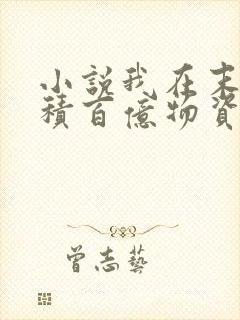 小說我在末
積百億物資
曾志藝